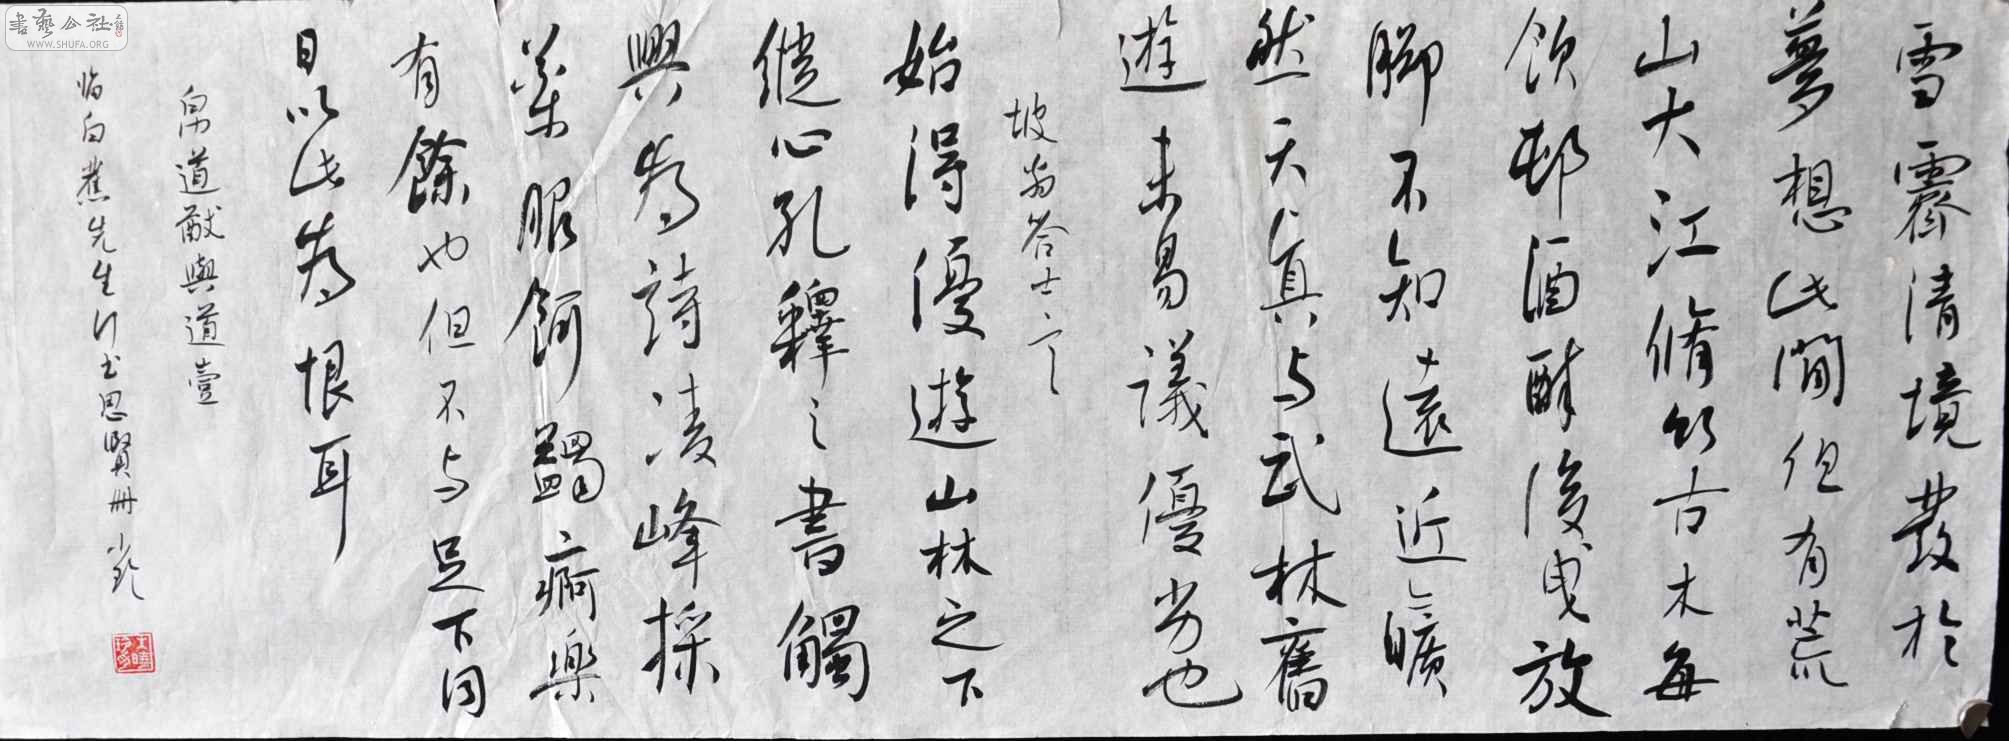 雪霽清境發於
夢想此間但有荒
山大江脩竹古木每
飲邨酒醉後曳放
腳不知遠近亦曠
然天真与武林舊
遊未易議優劣也
坡翁答言上人
始得優遊山林之下
縱心孔釋之書觸
興為詩凌峰採
藥服餌蠲痾樂
有餘也但不与足下同
日以此為恨耳
帛道猷與道壹
临白蕉先生行书思賢冊
書藝公社
WWW.SHUFA.ORG